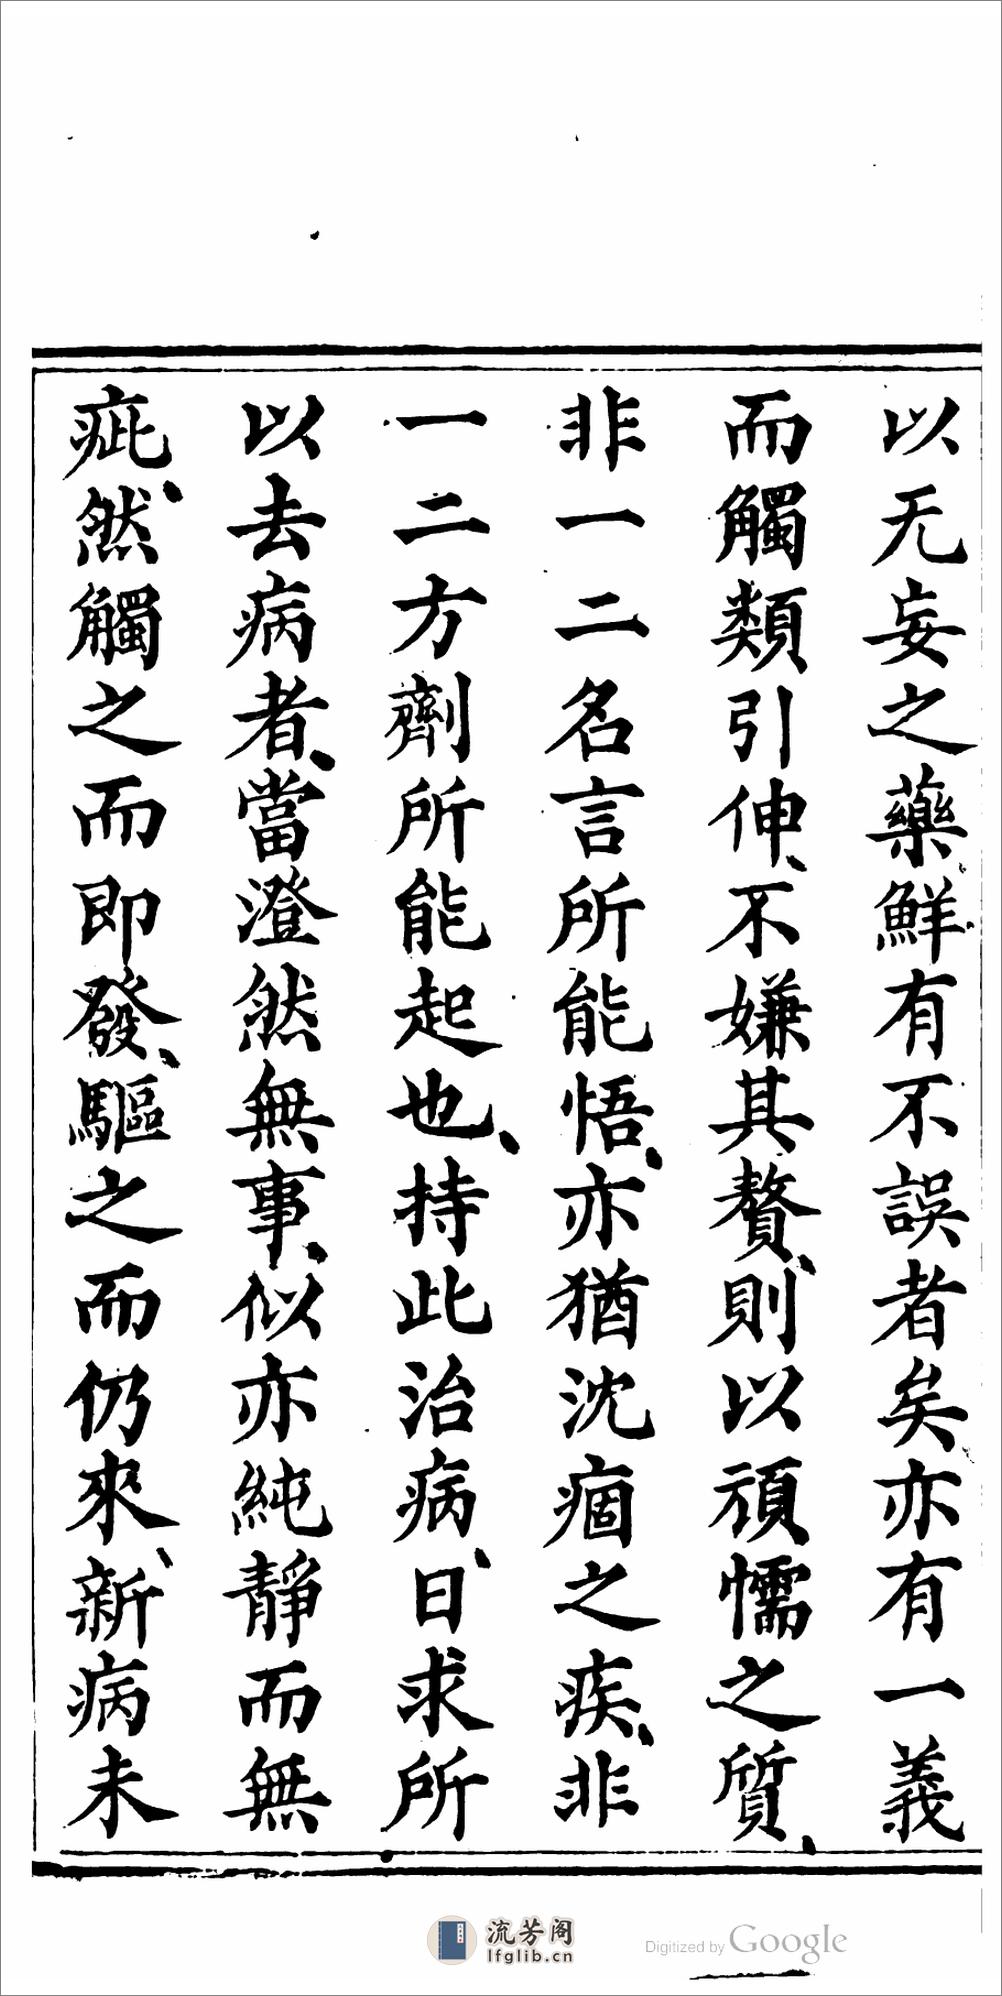 以无妄之藥鮮有不誤者矣亦有一義
而觸類引伸、不嫌其贅、則以頑懦之質、
非一二名言所能悟、亦猶沈痼之疾、非
一二方劑所能起也、持此治病、日求所
以去病者、當澄然無事、似亦純靜而無
疵、然觸之而即發、驅之而仍來、新病未
流芳阁
lfglib.cn
Digitized by Google